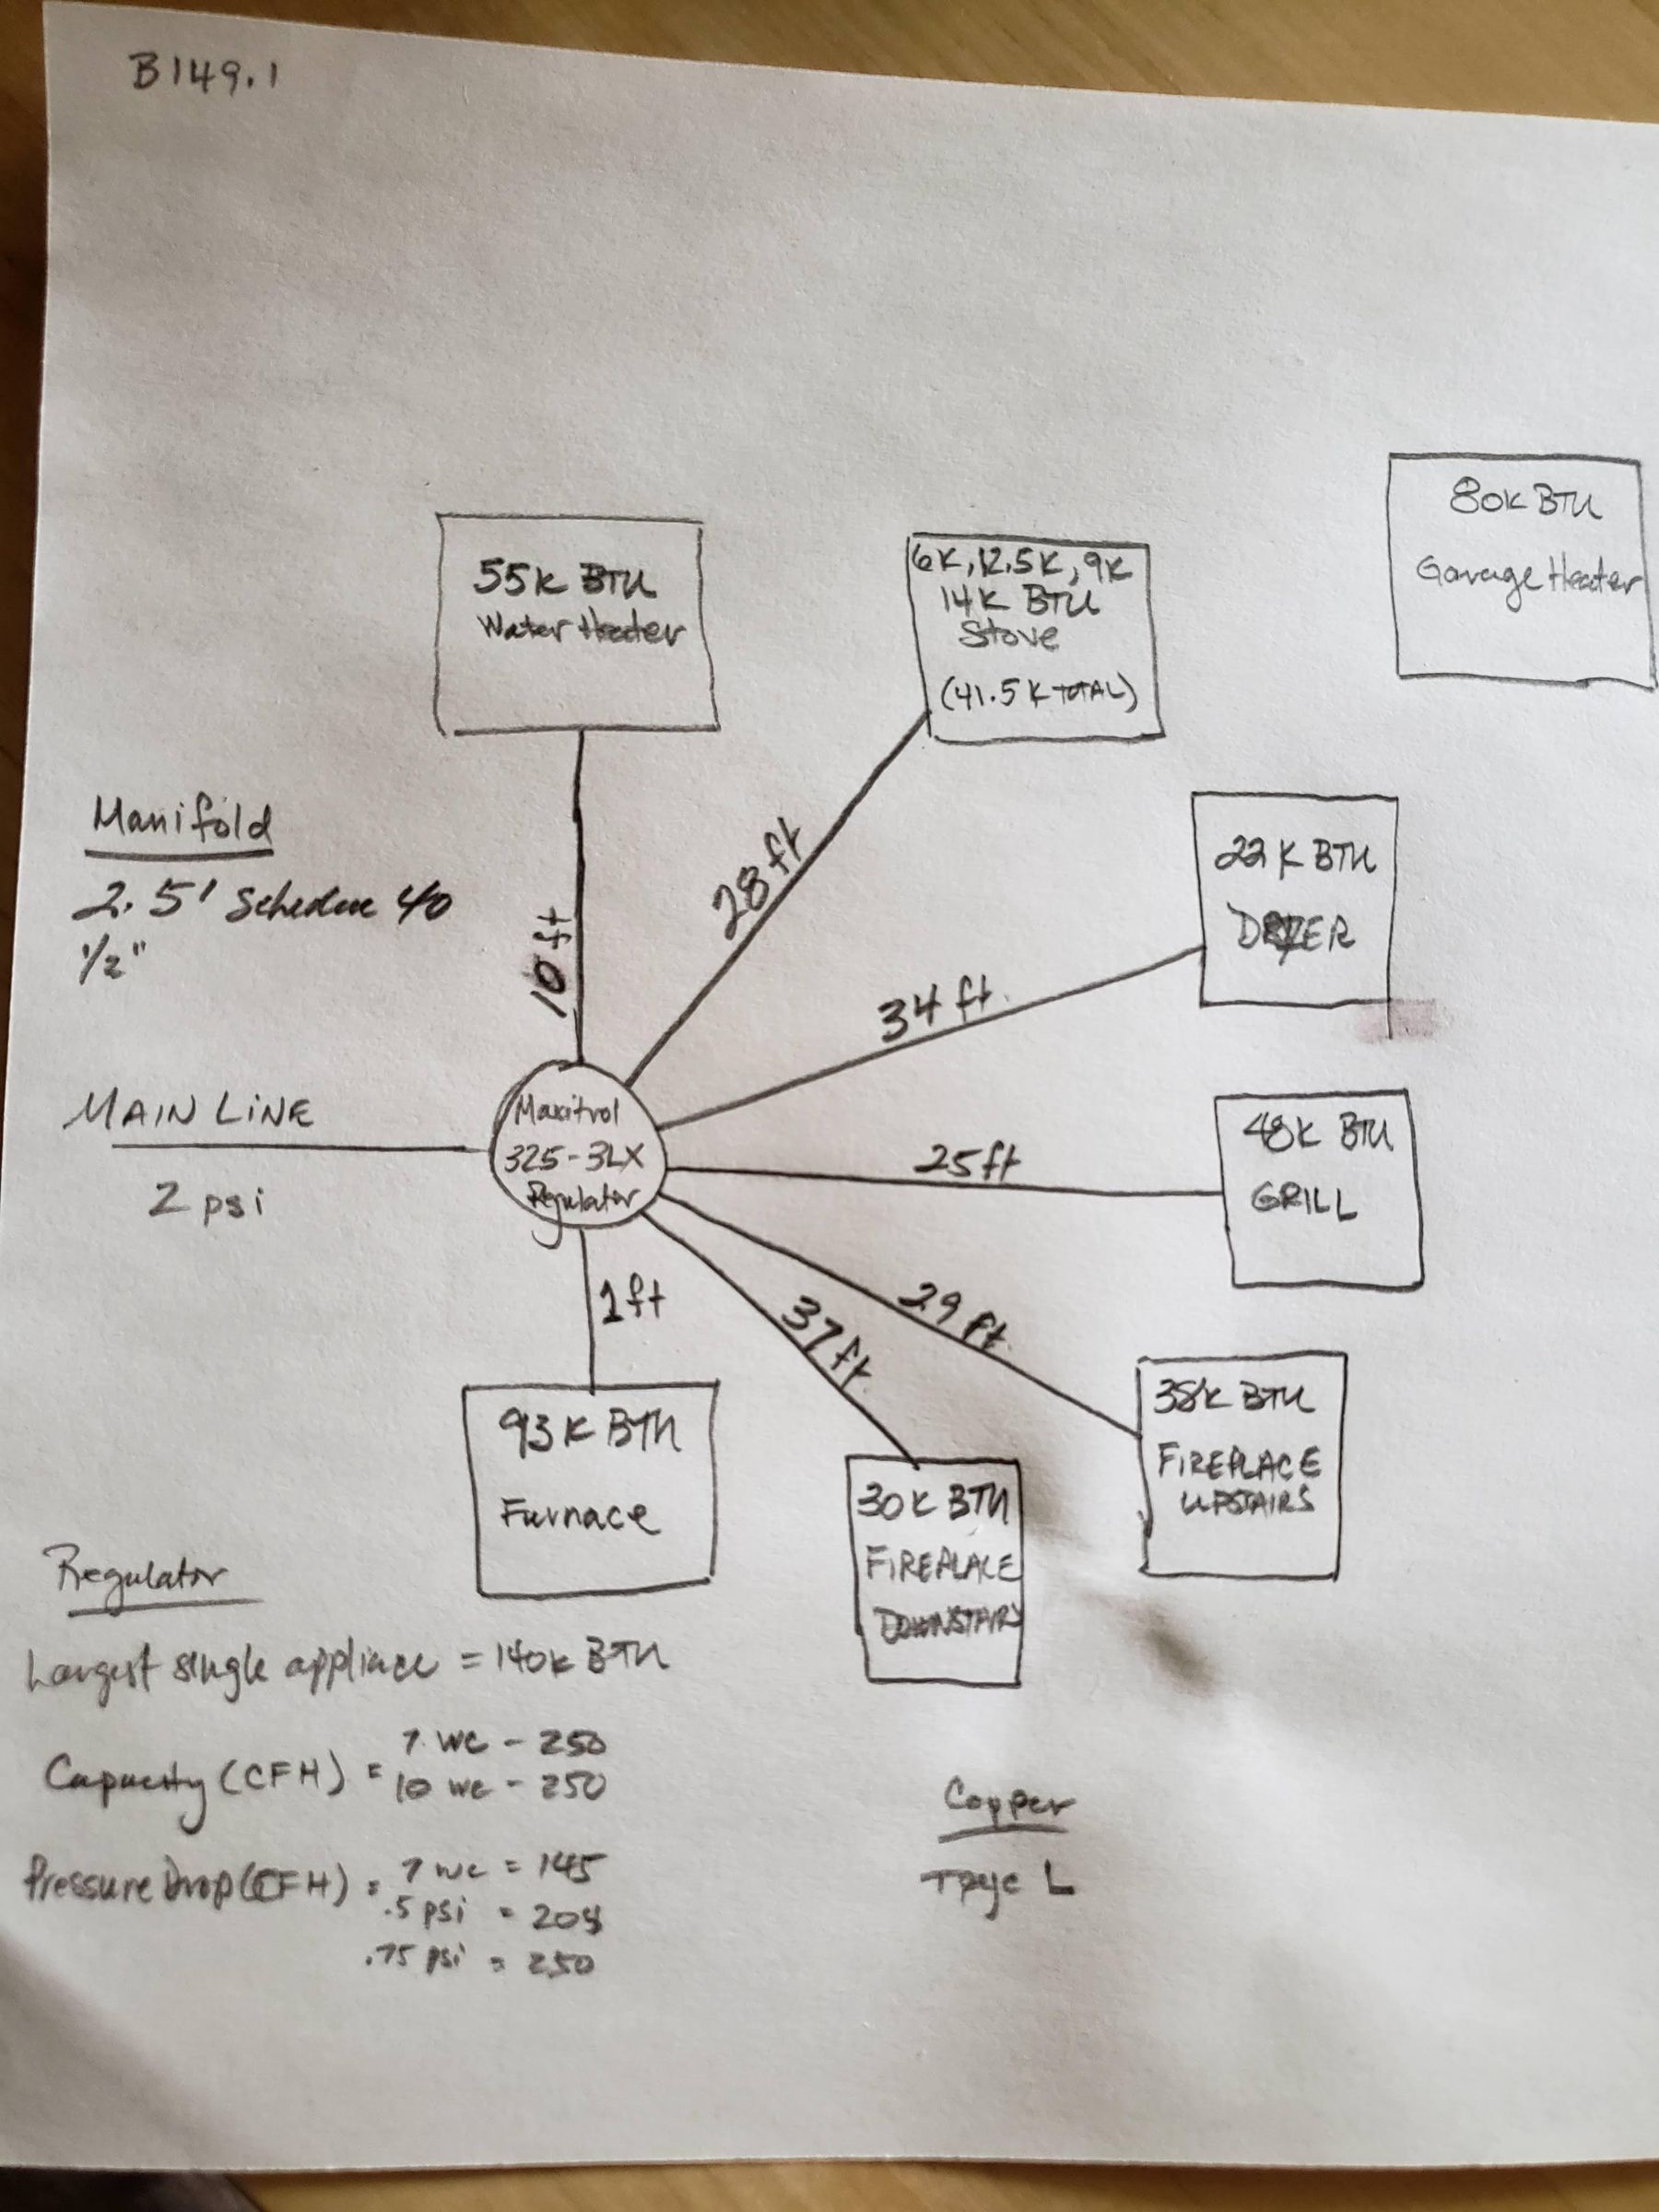 B149.1
55K BTU
Water Heater
6K, 12.5K, 9K
14K BTU
Stove
(41.5K TOTAL)
80K BTU
Garage Heater
Manifold
2.5' Schedule 40
1/2"
10 ft
28 ft
22K BTU
DRYER
34 ft.
MAIN LINE
2 psi
Maxitrol
325-3LX
Regulator
25 ft
48K BTU
GRILL
1 ft
37 ft.
29 ft.
38K BTU
FIREPLACE
UPSTAIRS
93K BTU
Furnace
30K BTU
FIREPLACE
DOWNSTAIRS
Regulator
Largest single appliance = 140K BTU
Capacity (CFH) = 7 WC - 250
10 WC - 250
Pressure Drop (CFH) = 7 WC = 145
.5 psi = 204
.75 psi = 250
Copper
Tpye L